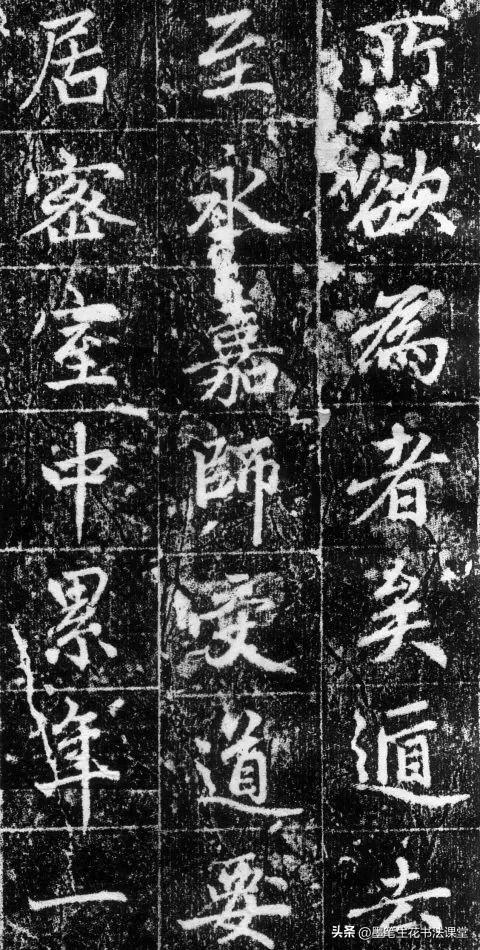 所欲為者矣遁去
至永嘉師受道要
居密室中累年一
头条 @墨笔生花书法课堂